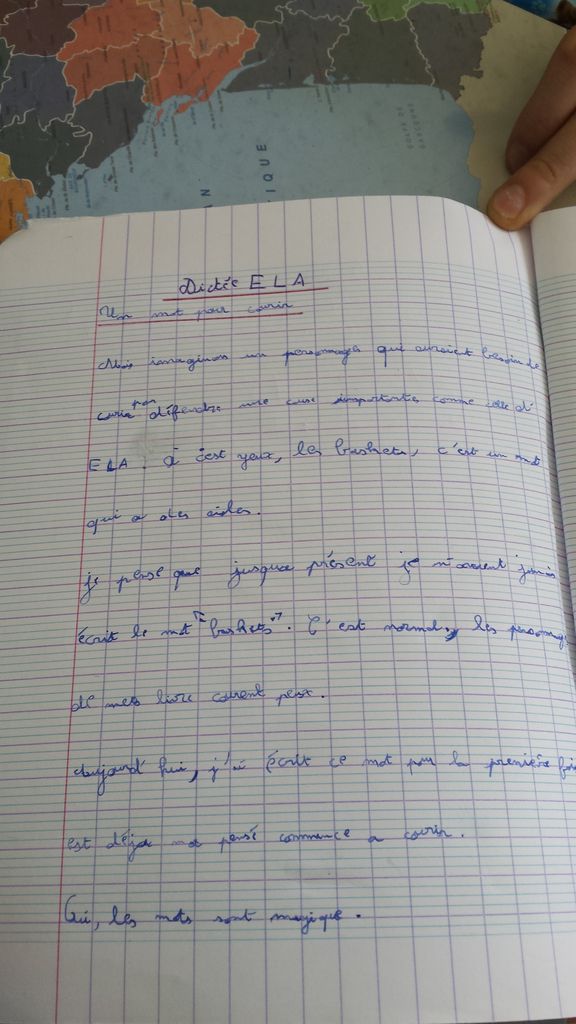 IQUE
AN
Dictée E L A
Un mot pour courir
Mais imaginons un personnages qui auraient besoin de
courir pour défendre une cause importantes comme celle d'
ELA. à c'est yeux, les baskets, c'est un mot
qui a des ailes.
je pense que jusqua présent je n'avaient jamais
écrit le mot "baskets". C'est normal, les personnage
de mes livre courent peux.
aujourd'hui, j'ai écrit ce mot pour la première fois
est déja ma pensé commence a courir.
Oui, les mots sont magique.